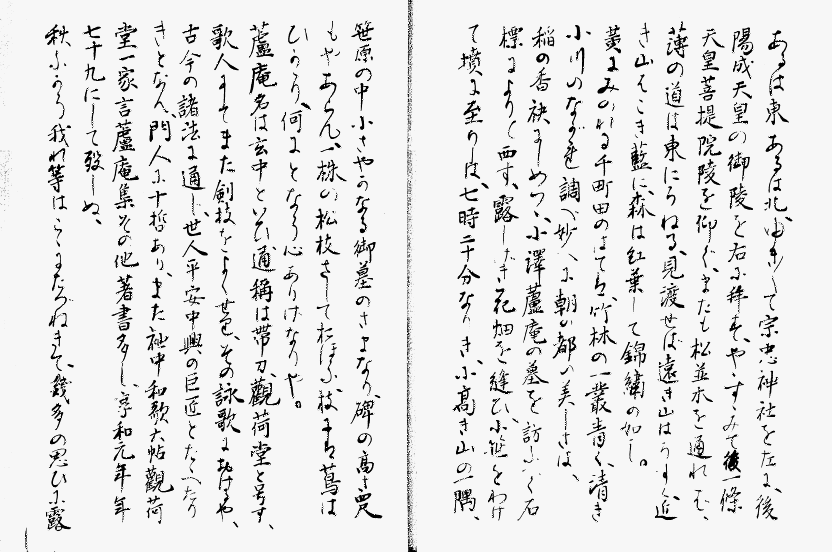 あるは東あるは北ゆきして宗忠神社を左に、後
陽成天皇の御陵を右に拝す、やゝすゝみて後一條
天皇菩提院陵を仰ぐ、またも松並木を通れば、
薄の道は東にうねる、見渡せば遠き山はうすく近
き山はこき藍に、森は紅葉して錦繍の如し。
黄ばみのれる千町田のはてに、竹林の一叢青く、清き
小川のながれ調べ妙へに朝の都の美しさは、
稲の香袂にしめつゝ、小澤蘆庵の墓を訪ふべく石
標によりて西す、露しげき花畑を縫ひ、小笹をわけ
て墳に至りしは、七時二十分なりき、小高き山の一隅、
笹原の中小さやかなる御墓のさまなり、碑の高さ四尺
もやあらん、一株の松枝さしておほふ、枝には蔦は
ひかゝり、何となう心ありげなりや。
蘆庵名は玄中といひ、通稱は帯刀、觀荷堂と号す、
歌人にてまた剣技をよくせり、その詠歌に於けるや、
古今の諸法に通じ、世人平安中興の巨匠とたゝへたり
きとなん、門人に十哲あり、また社中和歌大帖觀荷
堂一家言蘆庵集その他著書多し、享和元年年
七十九にして歿しぬ、
秋ふかう我れ等はこゝにたづねきて、幾多の思ひに露